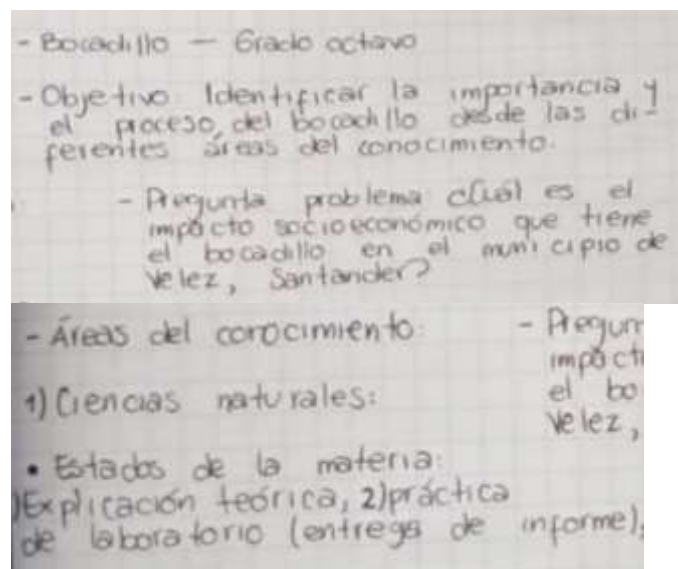 - Bocadillo — Grado octavo
- Objetivo: Identificar la importancia y
el proceso, del bocadillo desde las di-
ferentes áreas del conocimiento.
- Pregunta problema ¿Cuál es el
impacto socioeconómico que tiene
el bocadillo en el municipio de
Velez, Santander?
- Áreas del conocimiento:
1) Ciencias naturales:
• Estados de la materia:
)Explicación teórica, 2)práctica
de laboratorio (entrega de informe),
- Pregun
impact
el bo
Velez,